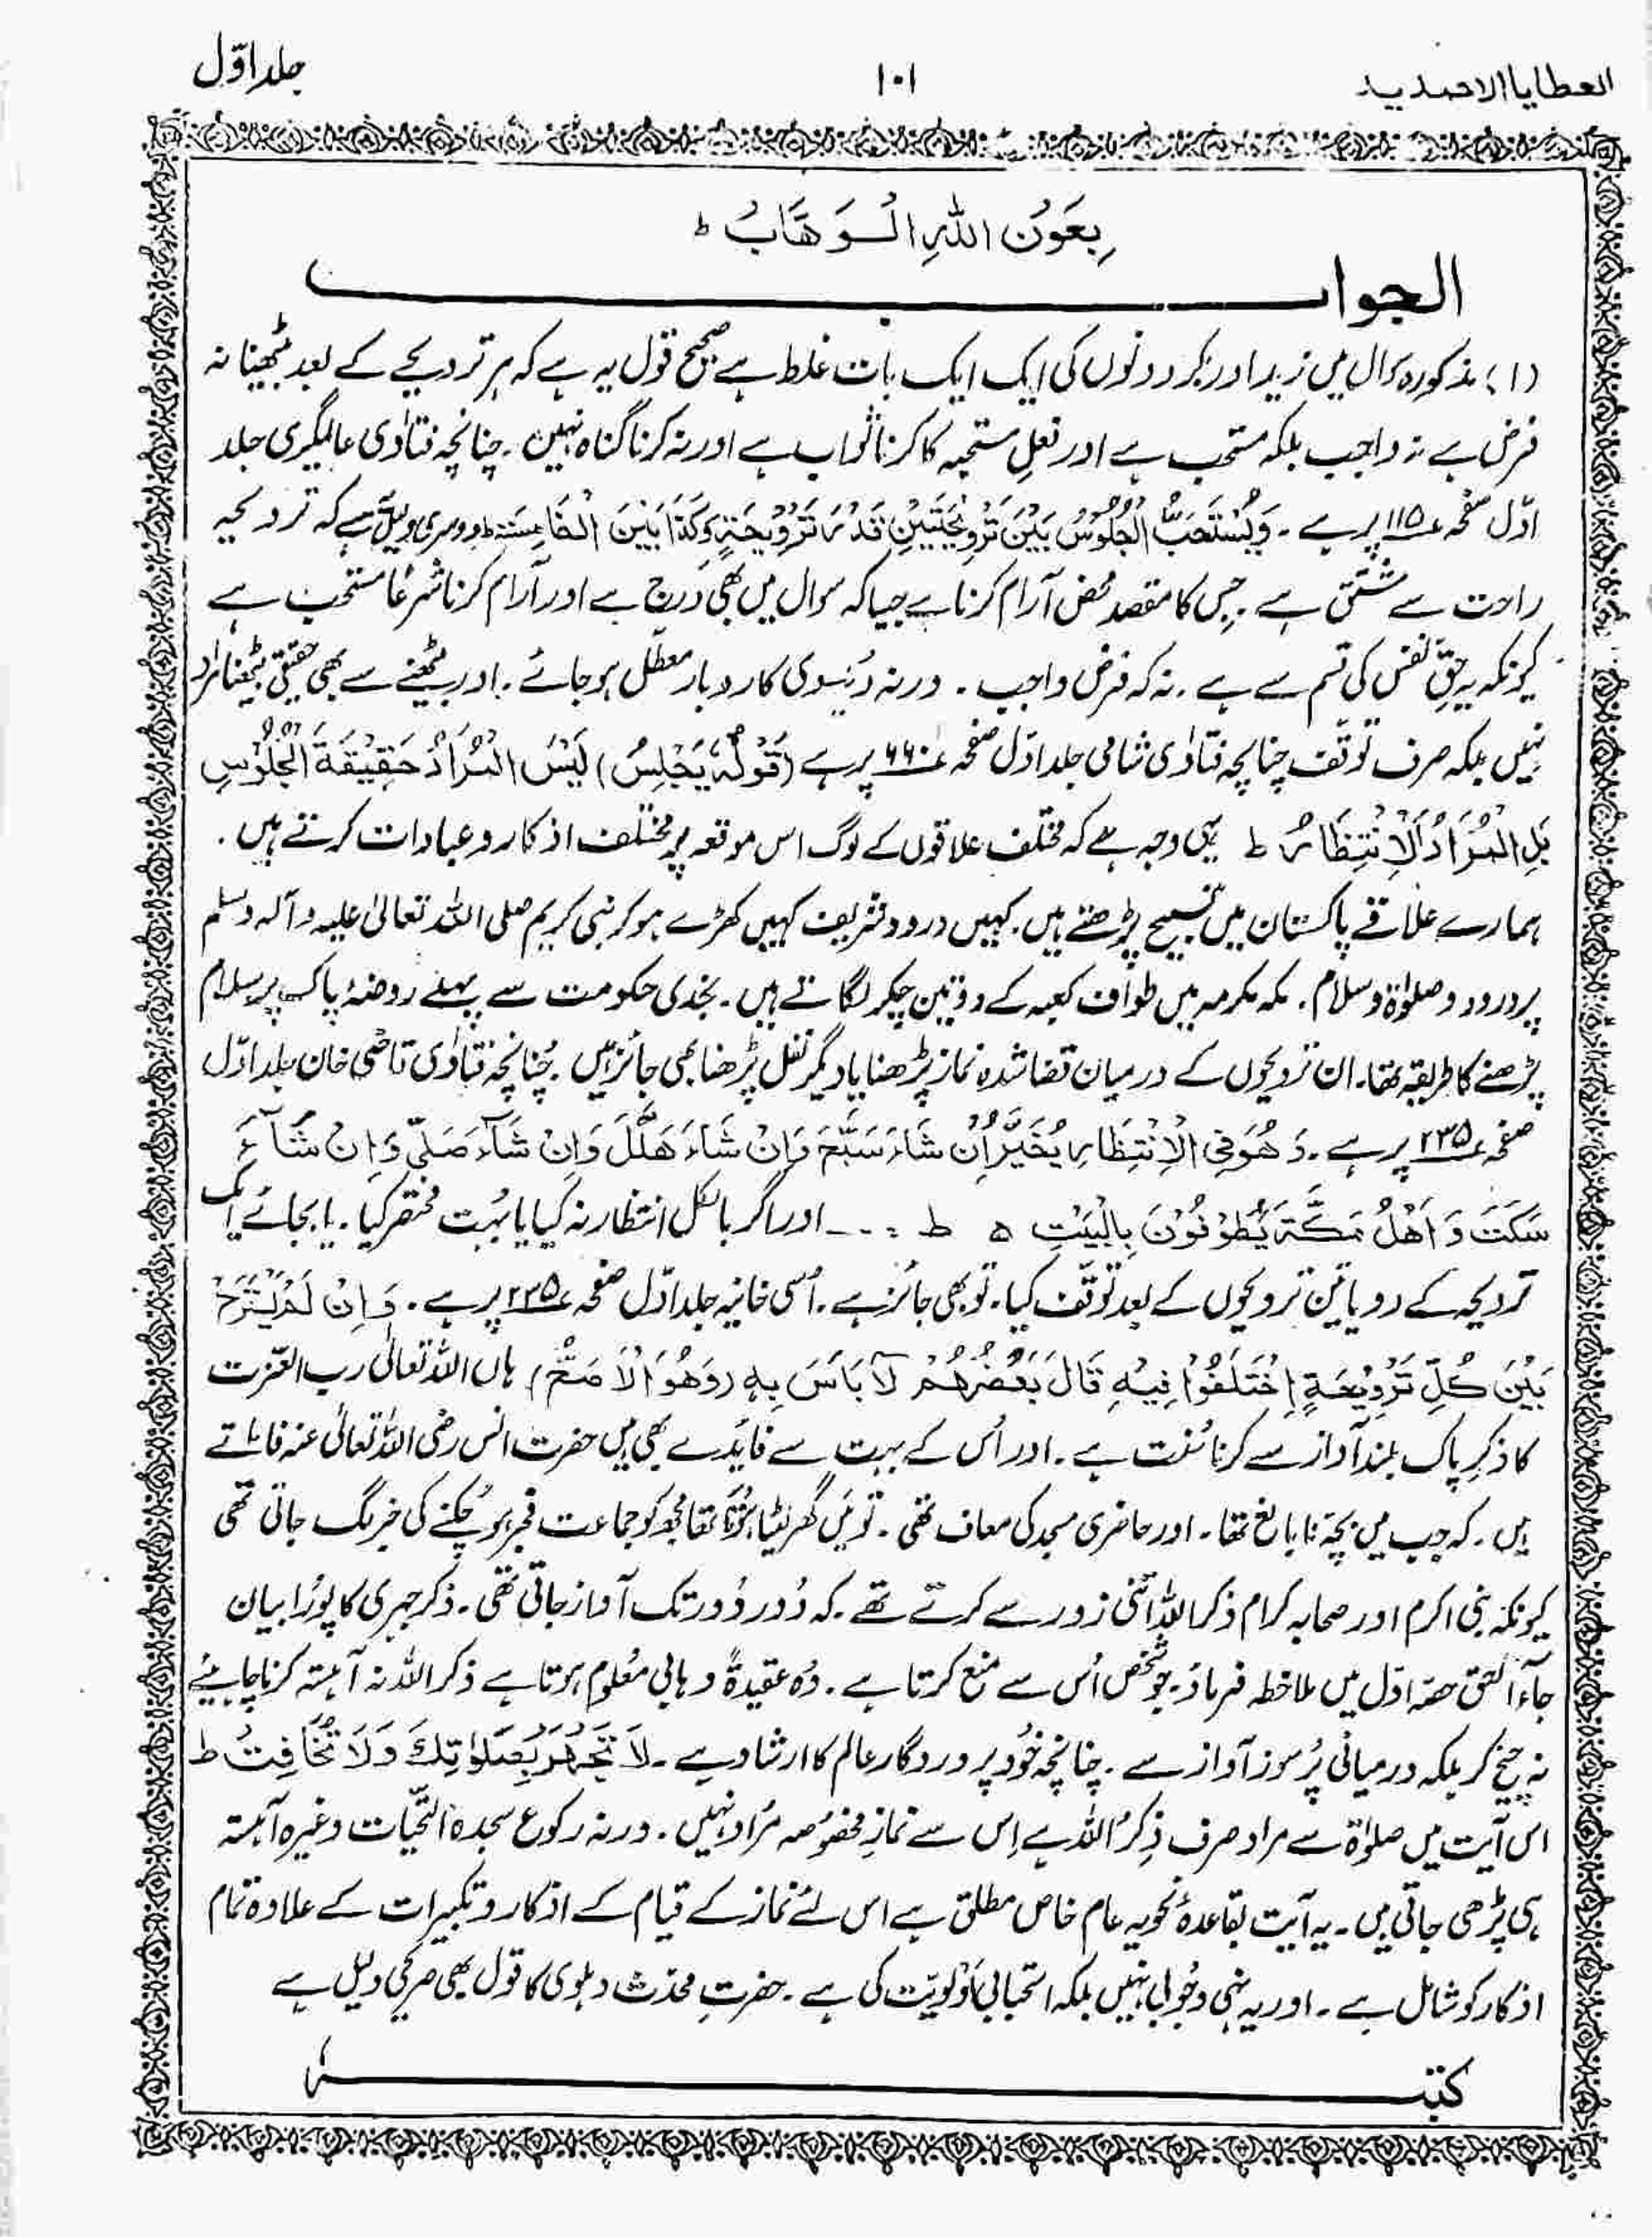 العطایا الاحمدیہ ۱۰۱ جلد اوّل
بِعَوْنِ اللّٰہِ الْوَھَّابُ ط
الجواب
(۱) مذکورہ سوال میں زید اور بکر دونوں کی ایک ایک بات غلط ہے صحیح قول یہ ہے کہ ہر ترویحے کے بعد بیٹھنا نہ
فرض ہے نہ واجب بلکہ مستحب ہے اور فعلِ مستحبہ کا کرنا ثواب ہے اور نہ کرنا گناہ نہیں۔ چنانچہ فتاوٰی عالمگیری جلد
اوّل صفحہ ۱۱۵ پر ہے۔ وَیُسْتَحَبُّ الْجُلُوْسُ بَیْنَ تَرْوِیْحَتَیْنِ قَدْرَ تَرْوِیْحَۃٍ وَکَذَا بَیْنَ الْخَامِسَۃِ ط دوسری دلیل ہے کہ ترویحہ
راحت سے مشتق ہے۔ جس کا مقصد محض آرام کرنا ہے جیسا کہ سوال میں بھی درج ہے اور آرام کرنا شرعًا مستحب ہے
کیونکہ یہ حقِ نفس کی قسم سے ہے۔ نہ کہ فرض واجب۔ ورنہ دُنیوی کاروبار معطّل ہو جائے۔ اور بیٹھنے سے بھی حقیقی بیٹھنا مراد
نہیں بلکہ صرف توقّف چنانچہ فتاوٰی شامی جلد اوّل صفحہ ۶۶۰ پر ہے (قَوْلُہٗ یَجْلِسُ) لَیْسَ الْمُرَادُ حَقِیْقَۃَ الْجُلُوْسِ
بَلِ الْمُرَادُ الْاِنْتِظَارُ ط یہی وجہ ہے کہ مختلف علاقوں کے لوگ اس موقعہ پر مختلف اذکار و عبادات کرتے ہیں۔
ہمارے علاقے پاکستان میں تسبیح پڑھتے ہیں۔ کہیں درود شریف کہیں کھڑے ہو کر نبی کریم صلی اللہ تعالیٰ علیہ وآلہ وسلم
پر درود و صلوٰۃ و سلام۔ مکہ مکرمہ میں طواف کعبہ کے دو تین چکر لگاتے ہیں۔ نجدی حکومت سے پہلے روضۂ پاک پر سلام
پڑھنے کا طریقہ تھا۔ ان ترویحوں کے درمیان قضا شدہ نماز پڑھنا یا دیگر نفل پڑھنا بھی جائز ہیں۔ چُنانچہ فتاوٰی قاضی خان جلد اوّل
صفحہ ۲۳۵ پر ہے۔ وَھُوَ فِی الْاِنْتِظَارِ یُخَیَّرُ اِنْ شَاءَ سَبَّحَ وَاِنْ شَاءَ ھَلَّلَ وَاِنْ شَآءَ صَلّٰی وَاِنْ شَآءَ
سَکَتَ وَ اَھْلُ مَکَّۃَ یَطُوْفُوْنَ بِالْبَیْتِ ہ ط ۔۔۔ اور اگر بالکل انتظار نہ کیا یا بہُت مختصر کیا۔ یا بجائے ایک
ترویحہ کے دو یا تین ترویحوں کے بعد توقّف کیا۔ تو بھی جائز ہے۔ اُسی خانیہ جلد اوّل صفحہ ۲۳۵ پر ہے۔ وَاِنْ لَمْ یَسْتَرِحْ
بَیْنَ کُلِّ تَرْوِیْحَۃٍ اِخْتَلَفُوْا فِیْہِ قَالَ بَعْضُھُمْ لَآ بَاَسَ بِہٖ (وَھُوَ الْاَصَحُّ) ہاں اللہ تعالیٰ رب العزت
کا ذکرِ پاک بلند آواز سے کرنا سُنّت ہے۔ اور اُس کے بہت سے فائدے بھی ہیں حضرت انس رضی اللہ تعالیٰ عنہ فرماتے
ہیں۔ کہ جب میں بچّہ نابالغ تھا۔ اور حاضری مسجد کی معاف تھی۔ تو میں گھر لیٹا ہوتا تھا مجھ کو جماعت فجر ہو چکنے کی خبر لگ جاتی تھی
کیونکہ نبی اکرم اور صحابہ کرام ذکر اللہ اتنی زور سے کرتے تھے۔ کہ دُور دُور تک آواز جاتی تھی۔ ذکر جہری کا پوُرا بیان
جآء الحق حصّہ اوّل میں ملاحظہ فرماؤ۔ جو شخص اُس سے منع کرتا ہے۔ وُہ عقیدۃً وہابی معُلوم ہوتا ہے ذکر اللہ نہ آہستہ کرنا چاہیئے
نہ چیخ کر بلکہ درمیانی پُر سوز آواز سے۔ چنانچہ خُود پروردگار عالم کا ارشاد ہے۔ لَا تَجْھَرْ بِصَلٰوتِکَ وَلَا تُخَافِتْ ط
اس آیت میں صلوٰۃ سے مراد صرف ذِکرُ اللہ ہے اِس سے نمازِ مخصُوصہ مُراد نہیں۔ ورنہ رکوع سجدہ التحّیات وغیرہ آہستہ
ہی پڑھی جاتی ہیں۔ یہ آیت بقاعدۂ نحویہ عام خاص مطلق ہے اس لئے نماز کے قیام کے اذکار و تکبیرات کے علاوہ تمام
اذکار کو شامل ہے۔ اور یہ نہی وجُوبی نہیں بلکہ استحبابی اَوْلویّت کی ہے۔ حضرتِ محدّث دہلوی کا قول بھی صریحی دلیل ہے
کتبہ